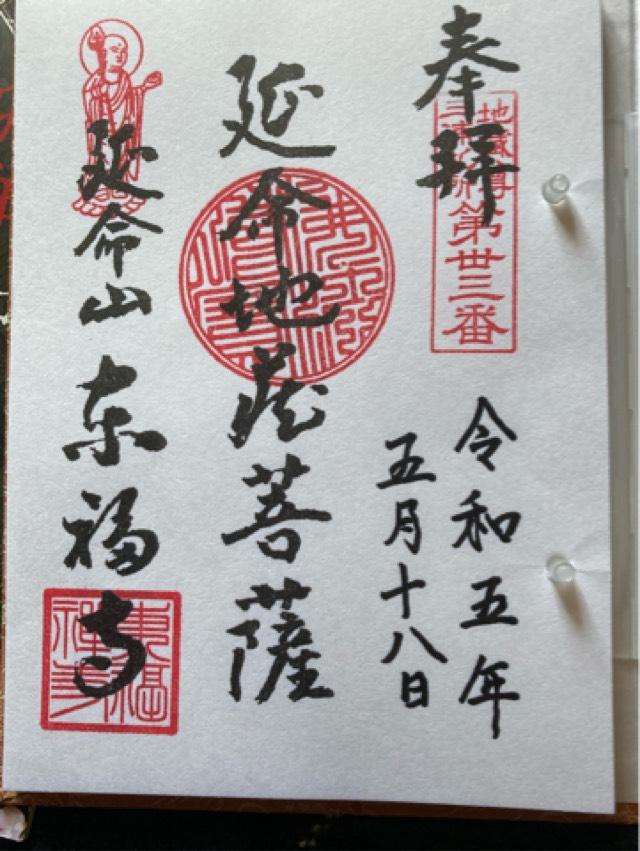 奉拝
第卅三番
令和五年
五月十八日
延命地蔵菩薩
延命山 東福寺
東福禅寺